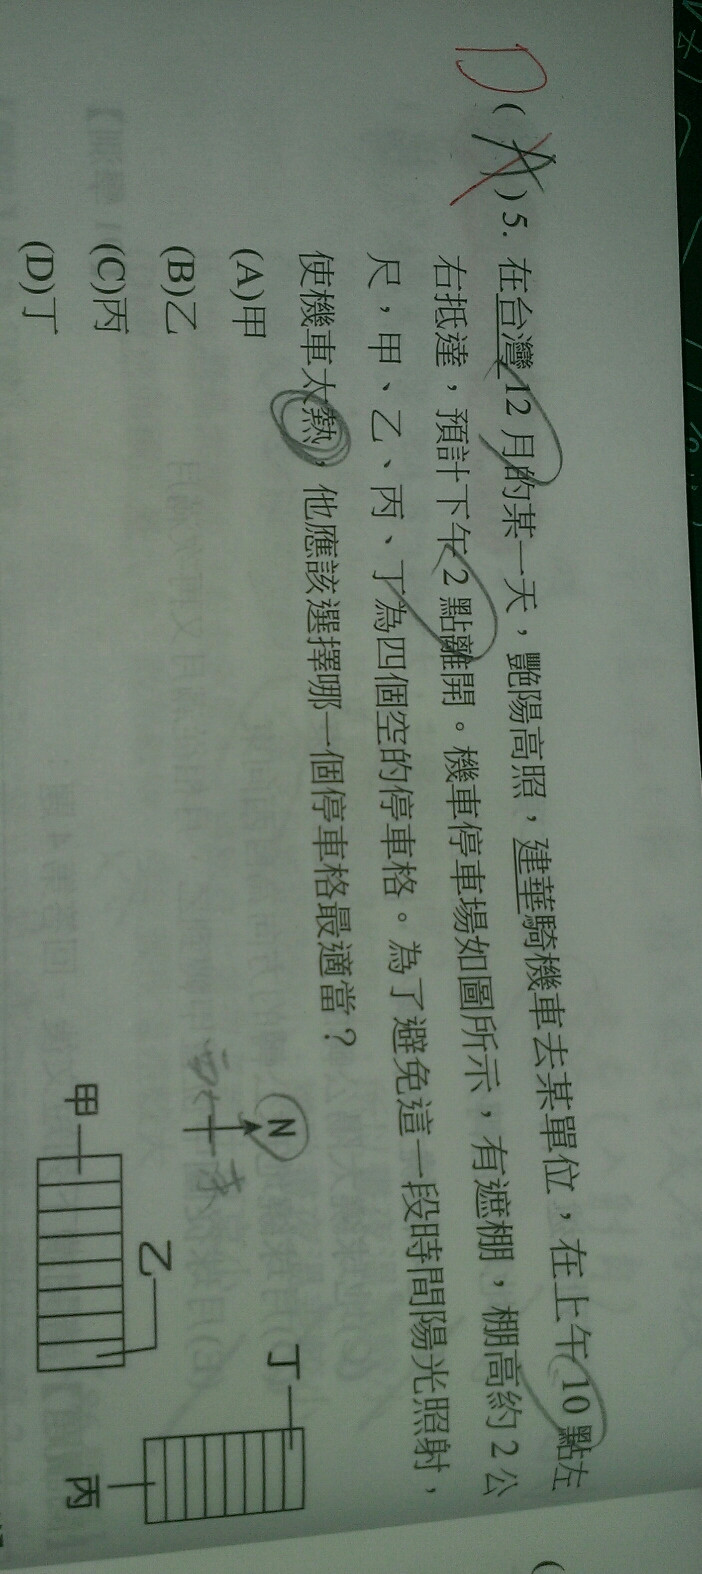 D
( A ) 5. 在台灣12月的某一天，艷陽高照，建華騎機車去某單位，在上午10點左
右抵達，預計下午2點離開。機車停車場如圖所示，有遮棚，棚高約2公
尺，甲、乙、丙、丁為四個空的停車格。為了避免這一段時間陽光照射，
使機車太熱，他應該選擇哪一個停車格最適當？
(A)甲
(B)乙
(C)丙
(D)丁
N
東
甲
乙
丁
丙